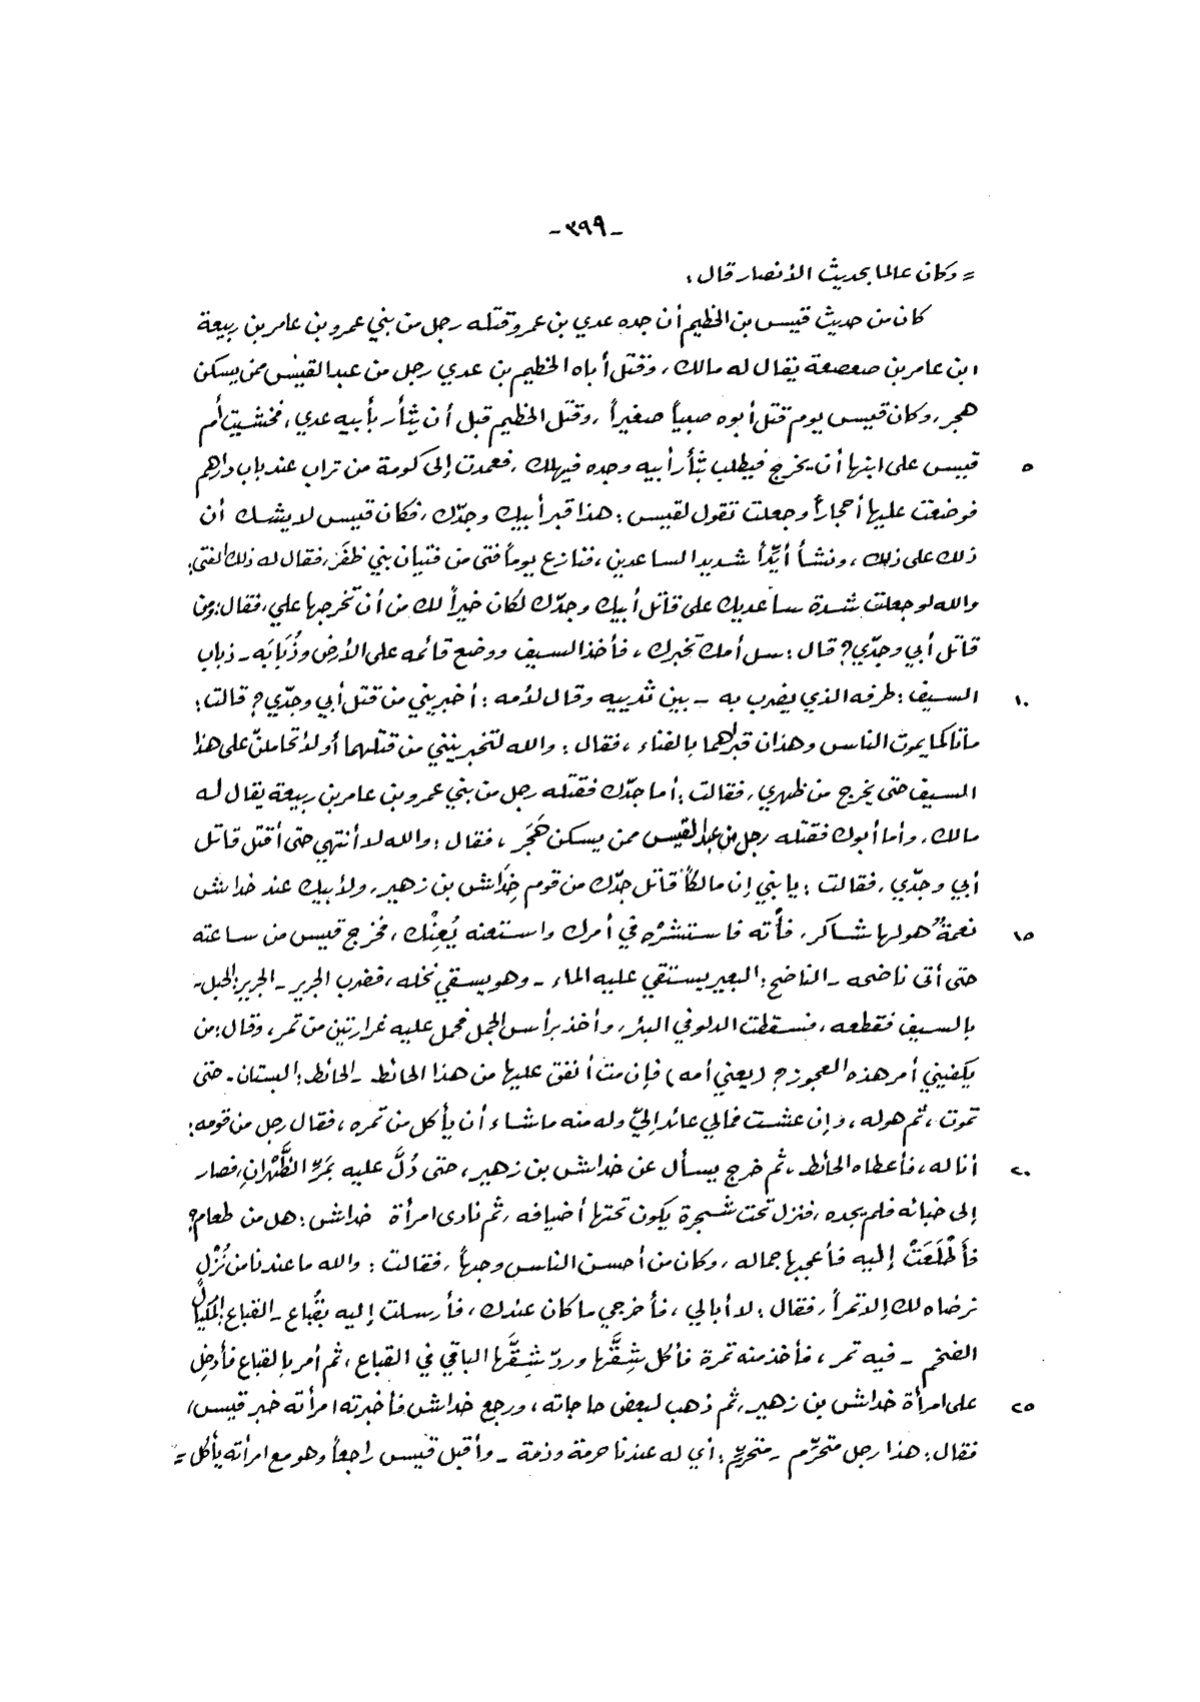 - ٣٩٩ -
= وكان عالما بحديث الأنصار قال:
كان من حديث قيس بن الخظيم أن جده عدي بن عمرو قتله رجل من بني عمرو بن عامر بن ربيعة
ابن عامر بن صعصعة يقال له مالك، وقتل أباه الخظيم بن عدي رجل من عبد القيس ممن يسكن
هجر، وكان قيس يوم قتل أبوه صبياً صغيراً، وقتل الخظيم قبل أن يثأر بأبيه عدي، فخشيت أم
قيس على ابنها أن يخرج فيطلب بثأر أبيه وجده فيهلك، فعمدت إلى كومة من تراب عند باب دارهم ٥
فوضعت عليها أحجاراً وجعلت تقول لقيس: هذا قبر أبيك وجدّك، فكان قيس لا يشك أن
ذلك على ذلك، ونشأ أيِّداً شديد الساعدين، فنازع يوماً فتى من فتيان بني ظفَر، فقال له ذلك الفتى:
والله لو جعلت شدة ساعديك على قاتل أبيك وجدّك لكان خيراً لك من أن تخرجها علي، فقال: ومن
قاتل أبي وجدّي؟ قال: سل أمك تخبرك، فأخذ السيف ووضع قائمه على الأرض وذُبَابَه - ذباب
السيف: طرفه الذي يضرب به - بين ثدييه وقال لأمه: أخبريني من قتل أبي وجدّي؟ قالت: ١٠
ماتا كما يموت الناس وهذان قبراهما بالفناء، فقال: والله لتخبرينني من قتلهما أو لأتحاملنّ على هذا
السيف حتى يخرج من ظهري، فقالت: أما جدّك فقتله رجل من بني عمرو بن عامر بن ربيعة يقال له
مالك، وأما أبوك فقتله رجل من عبد القيس ممن يسكن هَجَر، فقال: والله لا أنتهي حتى أقتل قاتل
أبي وجدّي، فقالت: يا بني إن مالكاً قاتل جدّك من قوم خِدَاش بن زهير، ولأبيك عند خداش
نعمةٌ هو لها شاكر، فأته فاستشرْه في أمرك واستعنه يُعِنْك، فخرج قيس من ساعته ١٥
حتى أتى ناضحه - الناضح: البعير يستقي عليه الماء - وهو يسقي نخله، فضرب الجرير - الجرير: الحبل -
بالسيف فقطعه، فسقطت الدلو في البئر، وأخذ برأس الجمل فحمل عليه غرارتين من تمر، وقال: من
يكفيني أمر هذه العجوز؟ (يعني أمه) فإن متّ أنفق عليها من هذا الحائط - الحائط: البستان - حتى
تموت، ثم هو له، وإن عشت فمالي عائد إليّ وله منه ما شاء أن يأكل من تمره، فقال رجل من قومه:
أنا له، فأعطاه الحائط، ثم خرج يسأل عن خداش بن زهير، حتى دُلَّ عليه بَمَرِّ الظَّهْرانِ، فصار ٢٠
إلى خبائه فلم يجده، فنزل تحت شجرة يكون تحتها أضيافه، ثم نادى امرأة خداش: هل من طعام؟
فأَطْلَعَتْ إليه فأعجبها جماله، وكان من أحسن الناس وجهاً، فقالت: والله ما عندنا من نُزْلٍ
نرضاه لك إلا تمراً، فقال: لا أبالي، فأخرجي ما كان عندك، فأرسلت إليه بقُباع - القباع: المكيالُ
الضخم - فيه تمر، فأخذ منه تمرة فأكل شِقَّها وردّ شِقَّها الباقي في القباع، ثم أمر بالقباع فأدخل
على امرأة خداش بن زهير، ثم ذهب لبعض حاجاته، ورجع خداش فأخبرته امرأته خبر قيس، ٢٥
فقال: هذا رجل متحرّم - متحرِّم: أي له عندنا حرمة وذمة - وأقبل قيس راجعاً وهو مع امرأته يأكل =